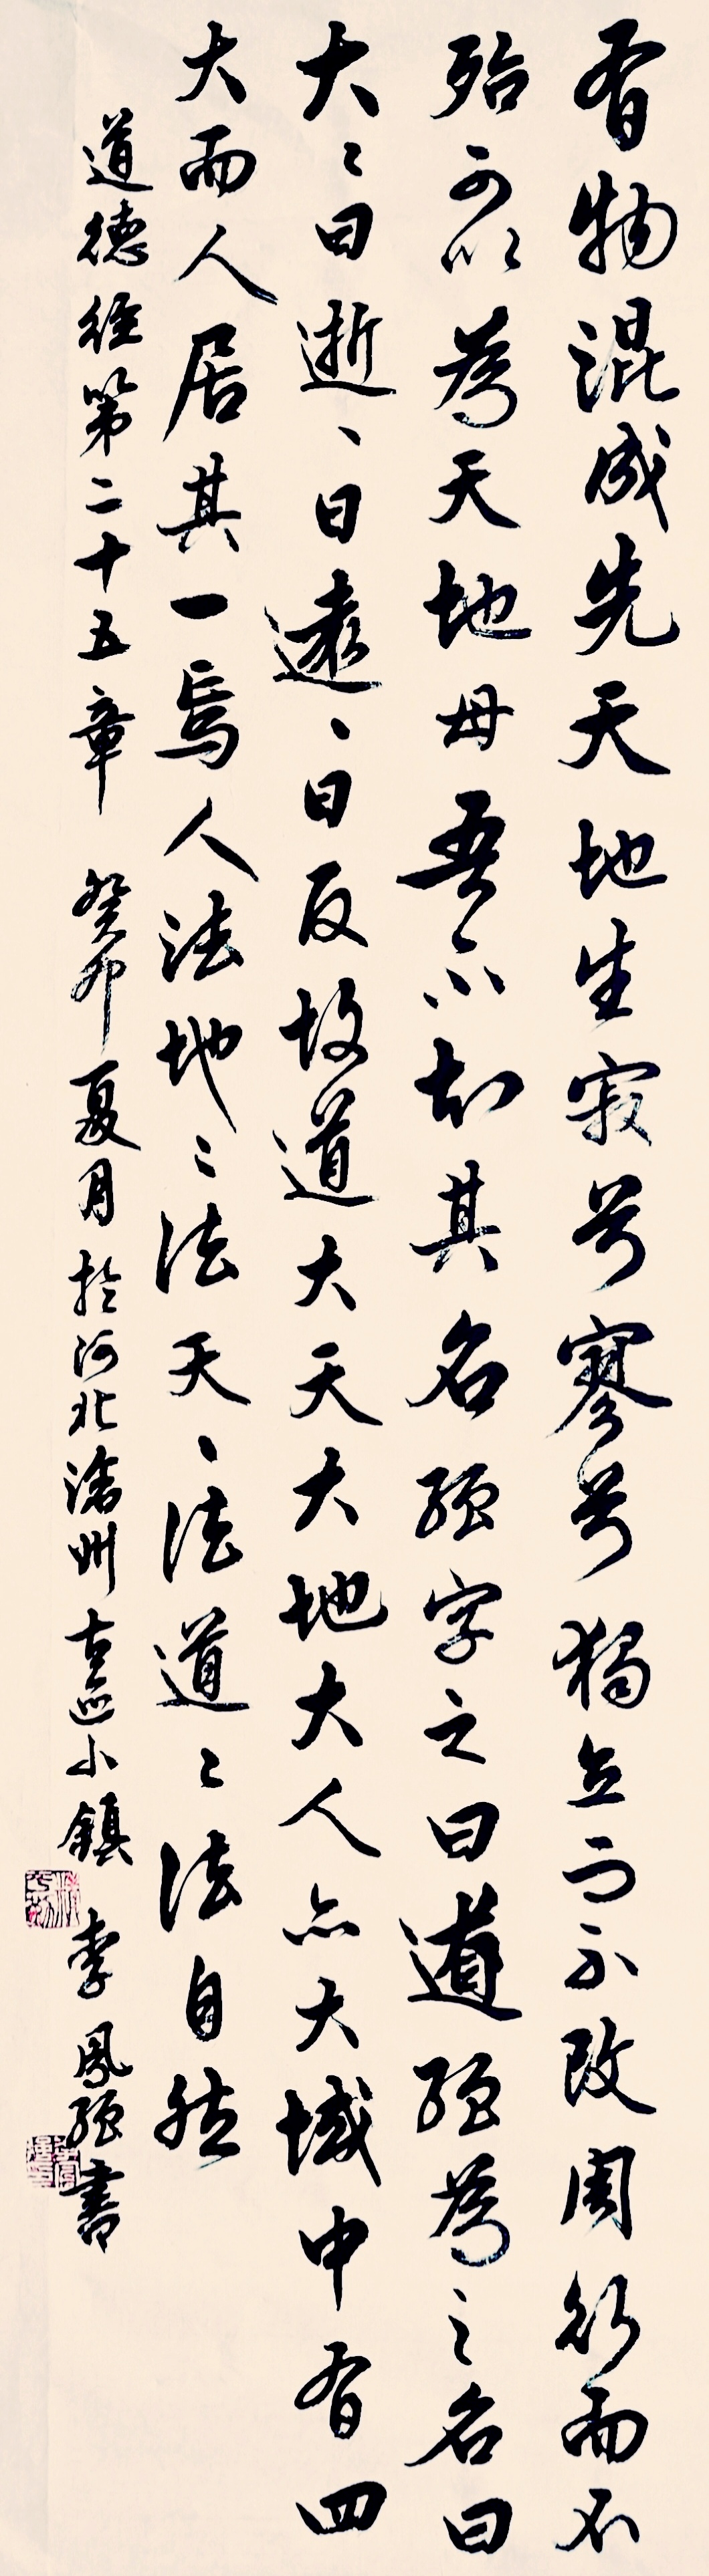 有物混成先天地生寂兮寥兮獨立而不改周行而不
殆可以為天地母吾不知其名强字之曰道强為之名曰
大〻曰逝〻曰遠〻曰反故道大天大地大人亦大域中有四
大而人居其一焉人法地〻法天〻法道〻法自然
道德经第二十五章 癸卯夏月於河北滄州古巡小鎮 李鳳强書